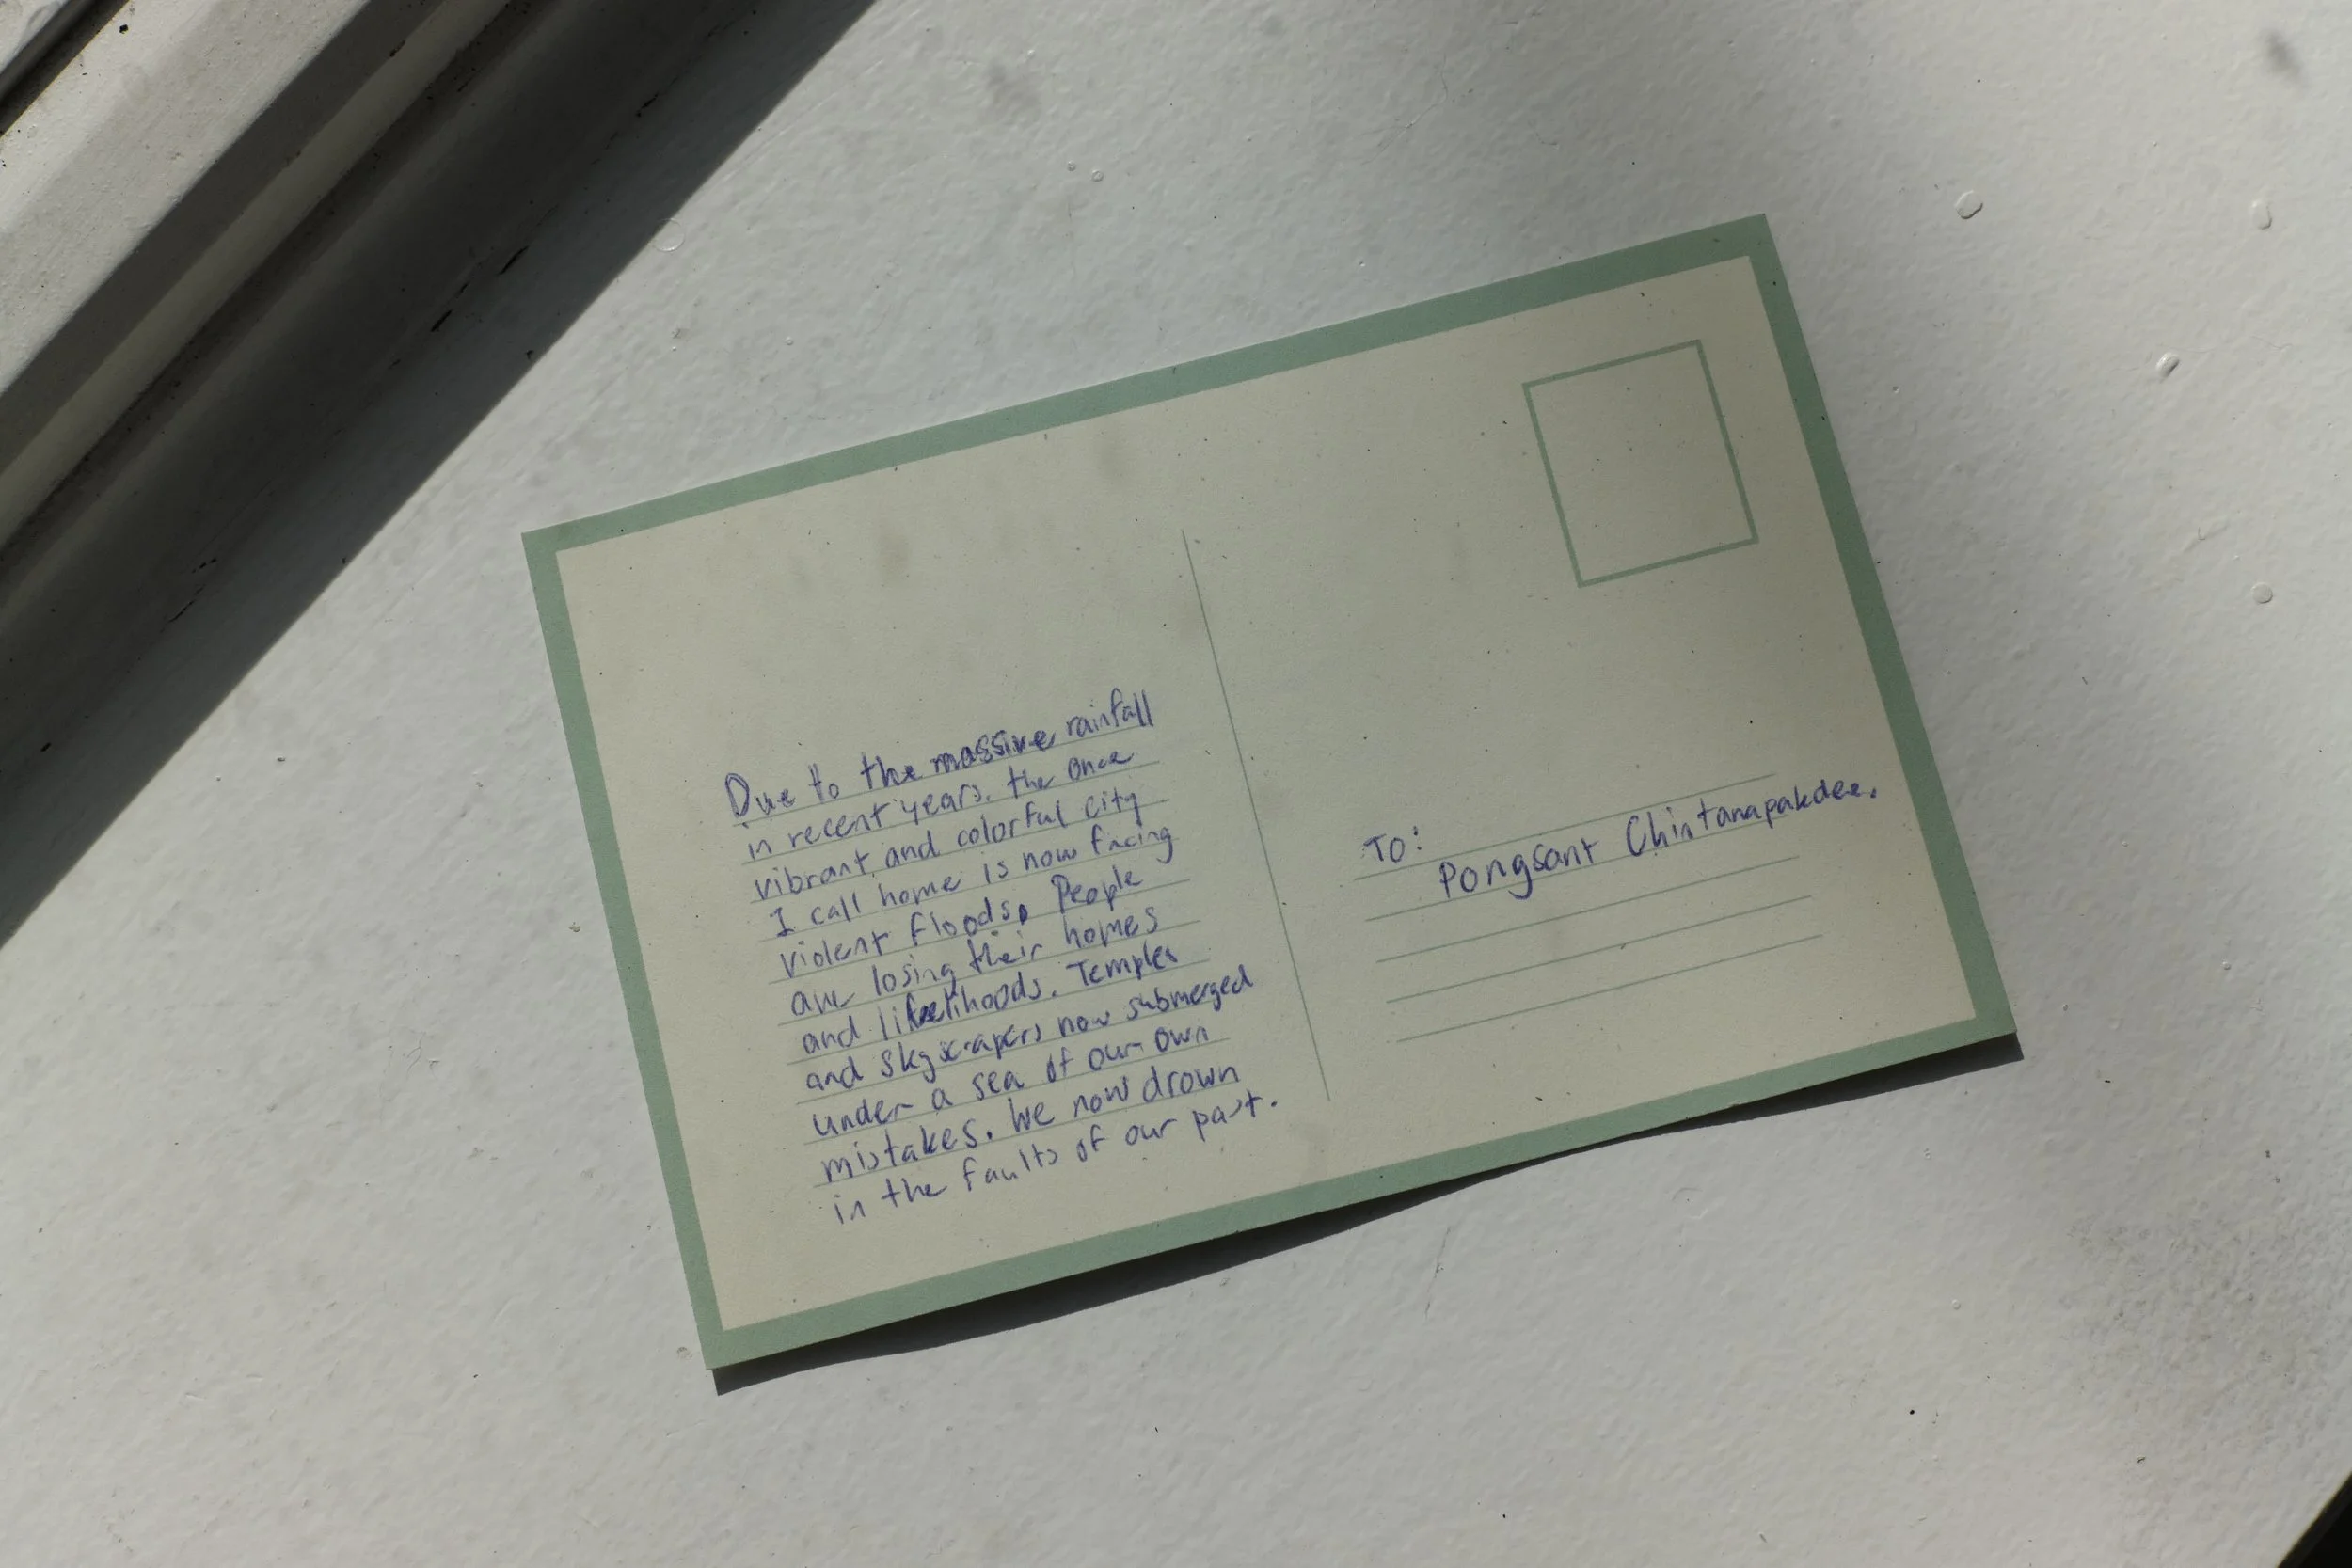 Due to the massive rainfall
in recent years, the once
vibrant and colorful city
I call home is now facing
violent floods. People
are losing their homes
and livelihoods. Temples
and skyscrapers now submerged
under a sea of our own
mistakes. We now drown
in the faults of our past.
TO:
Pongsant Chintanapakdee.